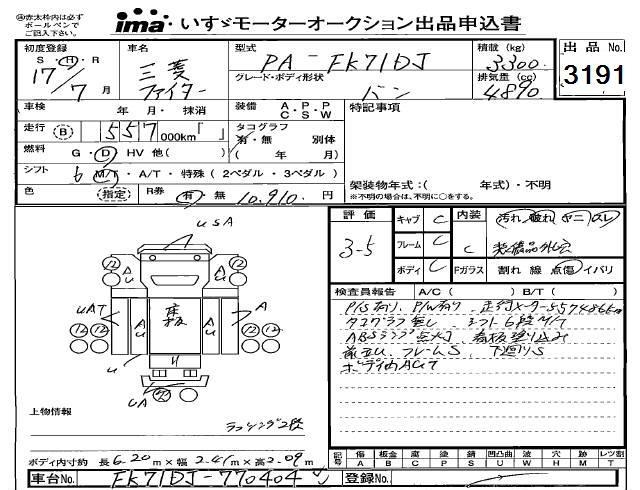 ㊟赤太枠内は必ず
ボールペンで
ご記入下さい。
ima いすゞモーターオークション出品申込書
初度登録 車名 型式 積載 (kg) 出品No.
S・H・R 三菱 PA-FK71DJ 3300 3191
17/7月 ファイター グレード・ボディ形状 バン 排気量 (cc) 4890
車検 年・月・抹消 装備 A・P・P C S W 特記事項
走行 (B) 557,000km「 」 タコグラフ 有・無 別体
燃料 G・D・HV 他( ) ( 年 月)
シフト 6 M/T・A/T・特殊(2ペダル・3ペダル) 架装物年式:( 年式)・不明
色 (指定) R券 有・無 10,910.円 ※不明の場合は、不明に○をする。
評価 キャブ C 内装 汚れ 破れ ヤニ スレ
3-5 フレーム C C 装備品外し
ボディ C Fガラス 割れ 線 点傷 イバリ
検査員報告 A/C( ) B/T( )
P/S有り、P/W有り、走行メーター557486km
タコグラフ無し シフト6段M/T
ABSランプ点灯 看板塗り込み
前立U フレームS 下廻りS
ボディ内AUT
USA
12 12
U U
UAT A
12 12 A U A U 12 12
U
UA
上物情報
ラッシング2段
ボディ内寸約 長 6.20 m×幅 2.41 m×高 2.09 m
記号 傷 A 板金 B 腐 C 塗 P 錆 S 凹凸曲 U 波 W 穴 H 跡 M レツ割 T
車台No. FK71DJ-770404 登録No.